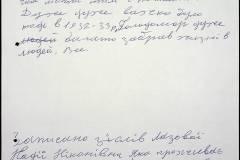 Дуже дуже важко було
тоді в 1932-33р. Голодомор дуже
багато забрав жизні в
людей. Все.
Записано зі слів Лазової
Надії Ніканівни яка проживає